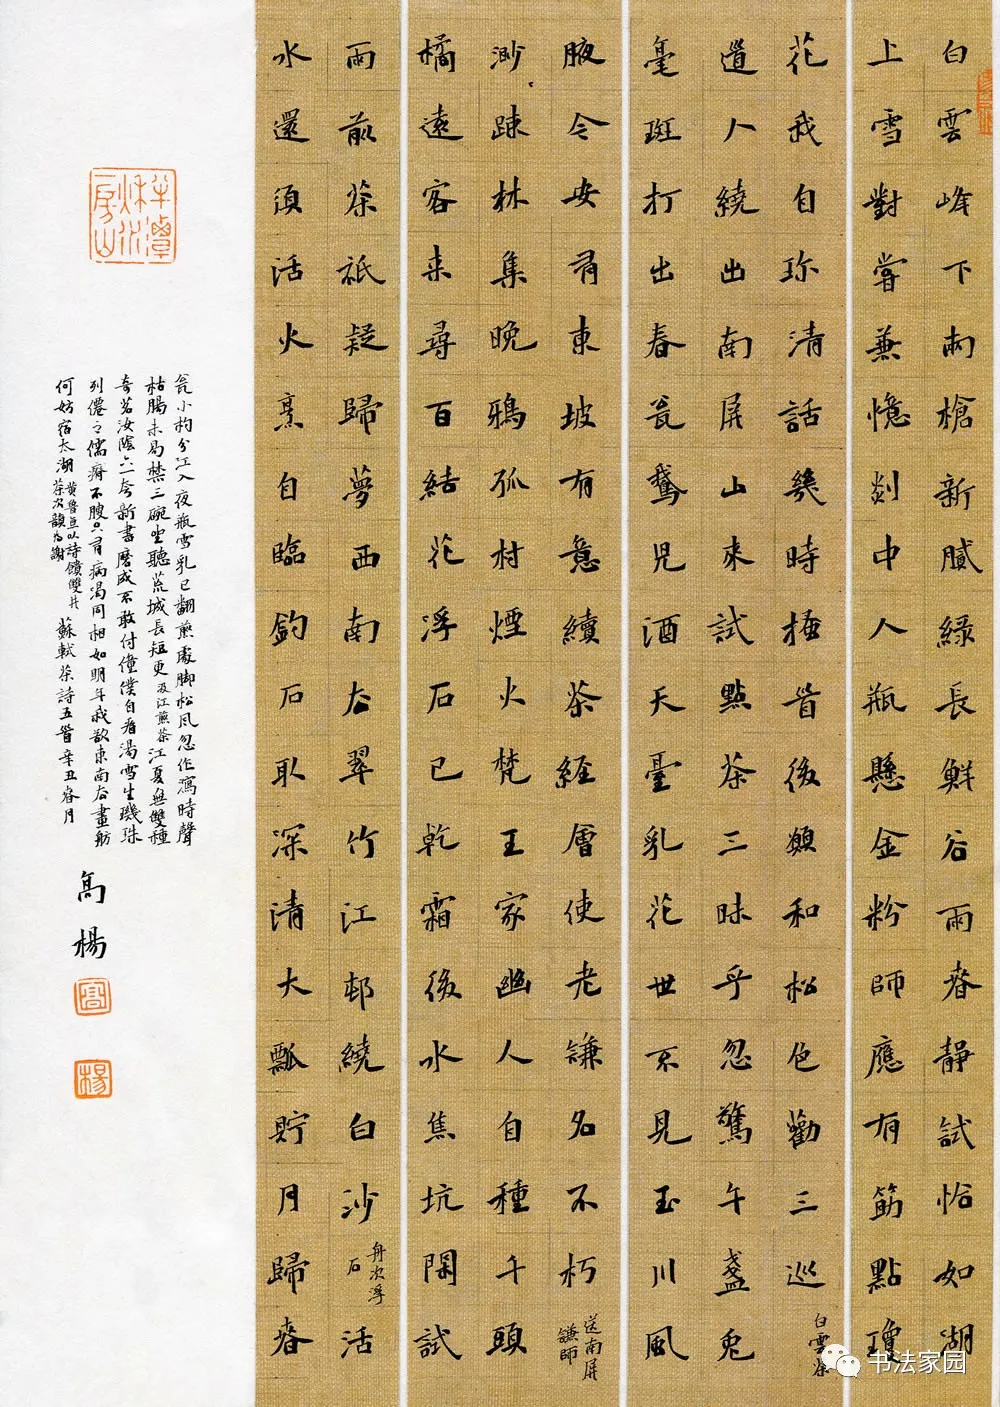 白雲峰下兩槍新膩綠長鮮谷雨春靜試恰如湖
上雪對嘗兼憶剡中人瓶懸金粉師應有筯點瓊
花我自珍清話幾時搔首後願和松色勸三巡
白雲茶
道人繞出南屏山來試點茶三昧乎忽驚午盞兔
毫斑打出春瓮鵝兒酒天臺乳花世不見玉川風
腋今安有東坡有意續茶經會使老謙名不朽
送南屏
謙師
渺踈林集晚鴉孤村煙火梵王家幽人自種千頭
橘遠客來尋百結花浮石已乾霜後水焦坑閑試
雨前茶祇疑歸夢西南去翠竹江邨繞白沙
舟次浮
石
活
水還須活火烹自臨釣石取深清大瓢貯月歸春
瓮小杓分江入夜瓶雪乳已翻煎處脚松風忽作瀉時聲
枯腸未易禁三碗坐聽荒城長短更汲江煎茶江夏無雙種
奇茗汝陰六一夸新書磨成不敢付僮僕自看湯雪生璣珠
列僊之儒瘠不腴只有病渴同相如明年我欲東南去畫舫
何妨宿太湖
黄魯直以詩饋雙井
茶次韻為謝
蘇軾茶詩五首辛丑春月
高楊
半潭秋水一房山
高
楊
书法家园